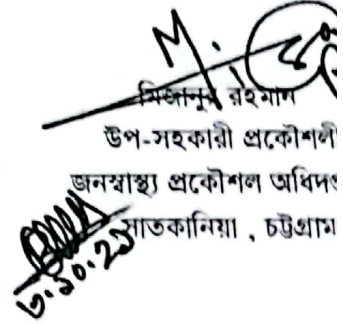 মিজানুর রহমান
উপ-সহকারী প্রকৌশলী
জনস্বাস্থ্য প্রকৌশল অধিদপ্ত
সাতকানিয়া , চট্টগ্রাম